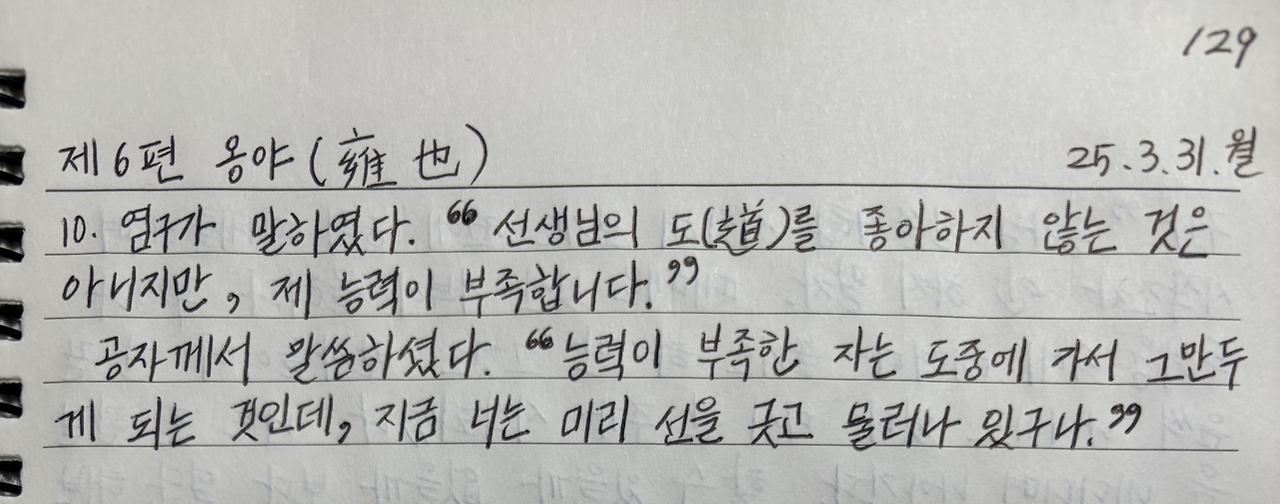 129
제6편 옹야(雍也) 25.3.31.월
10. 염구가 말하였다. "선생님의 도(道)를 좋아하지 않는 것은
아니지만, 제 능력이 부족합니다."
공자께서 말씀하셨다. "능력이 부족한 자는 도중에 가서 그만두
게 되는 것인데, 지금 너는 미리 선을 긋고 물러나 있구나."